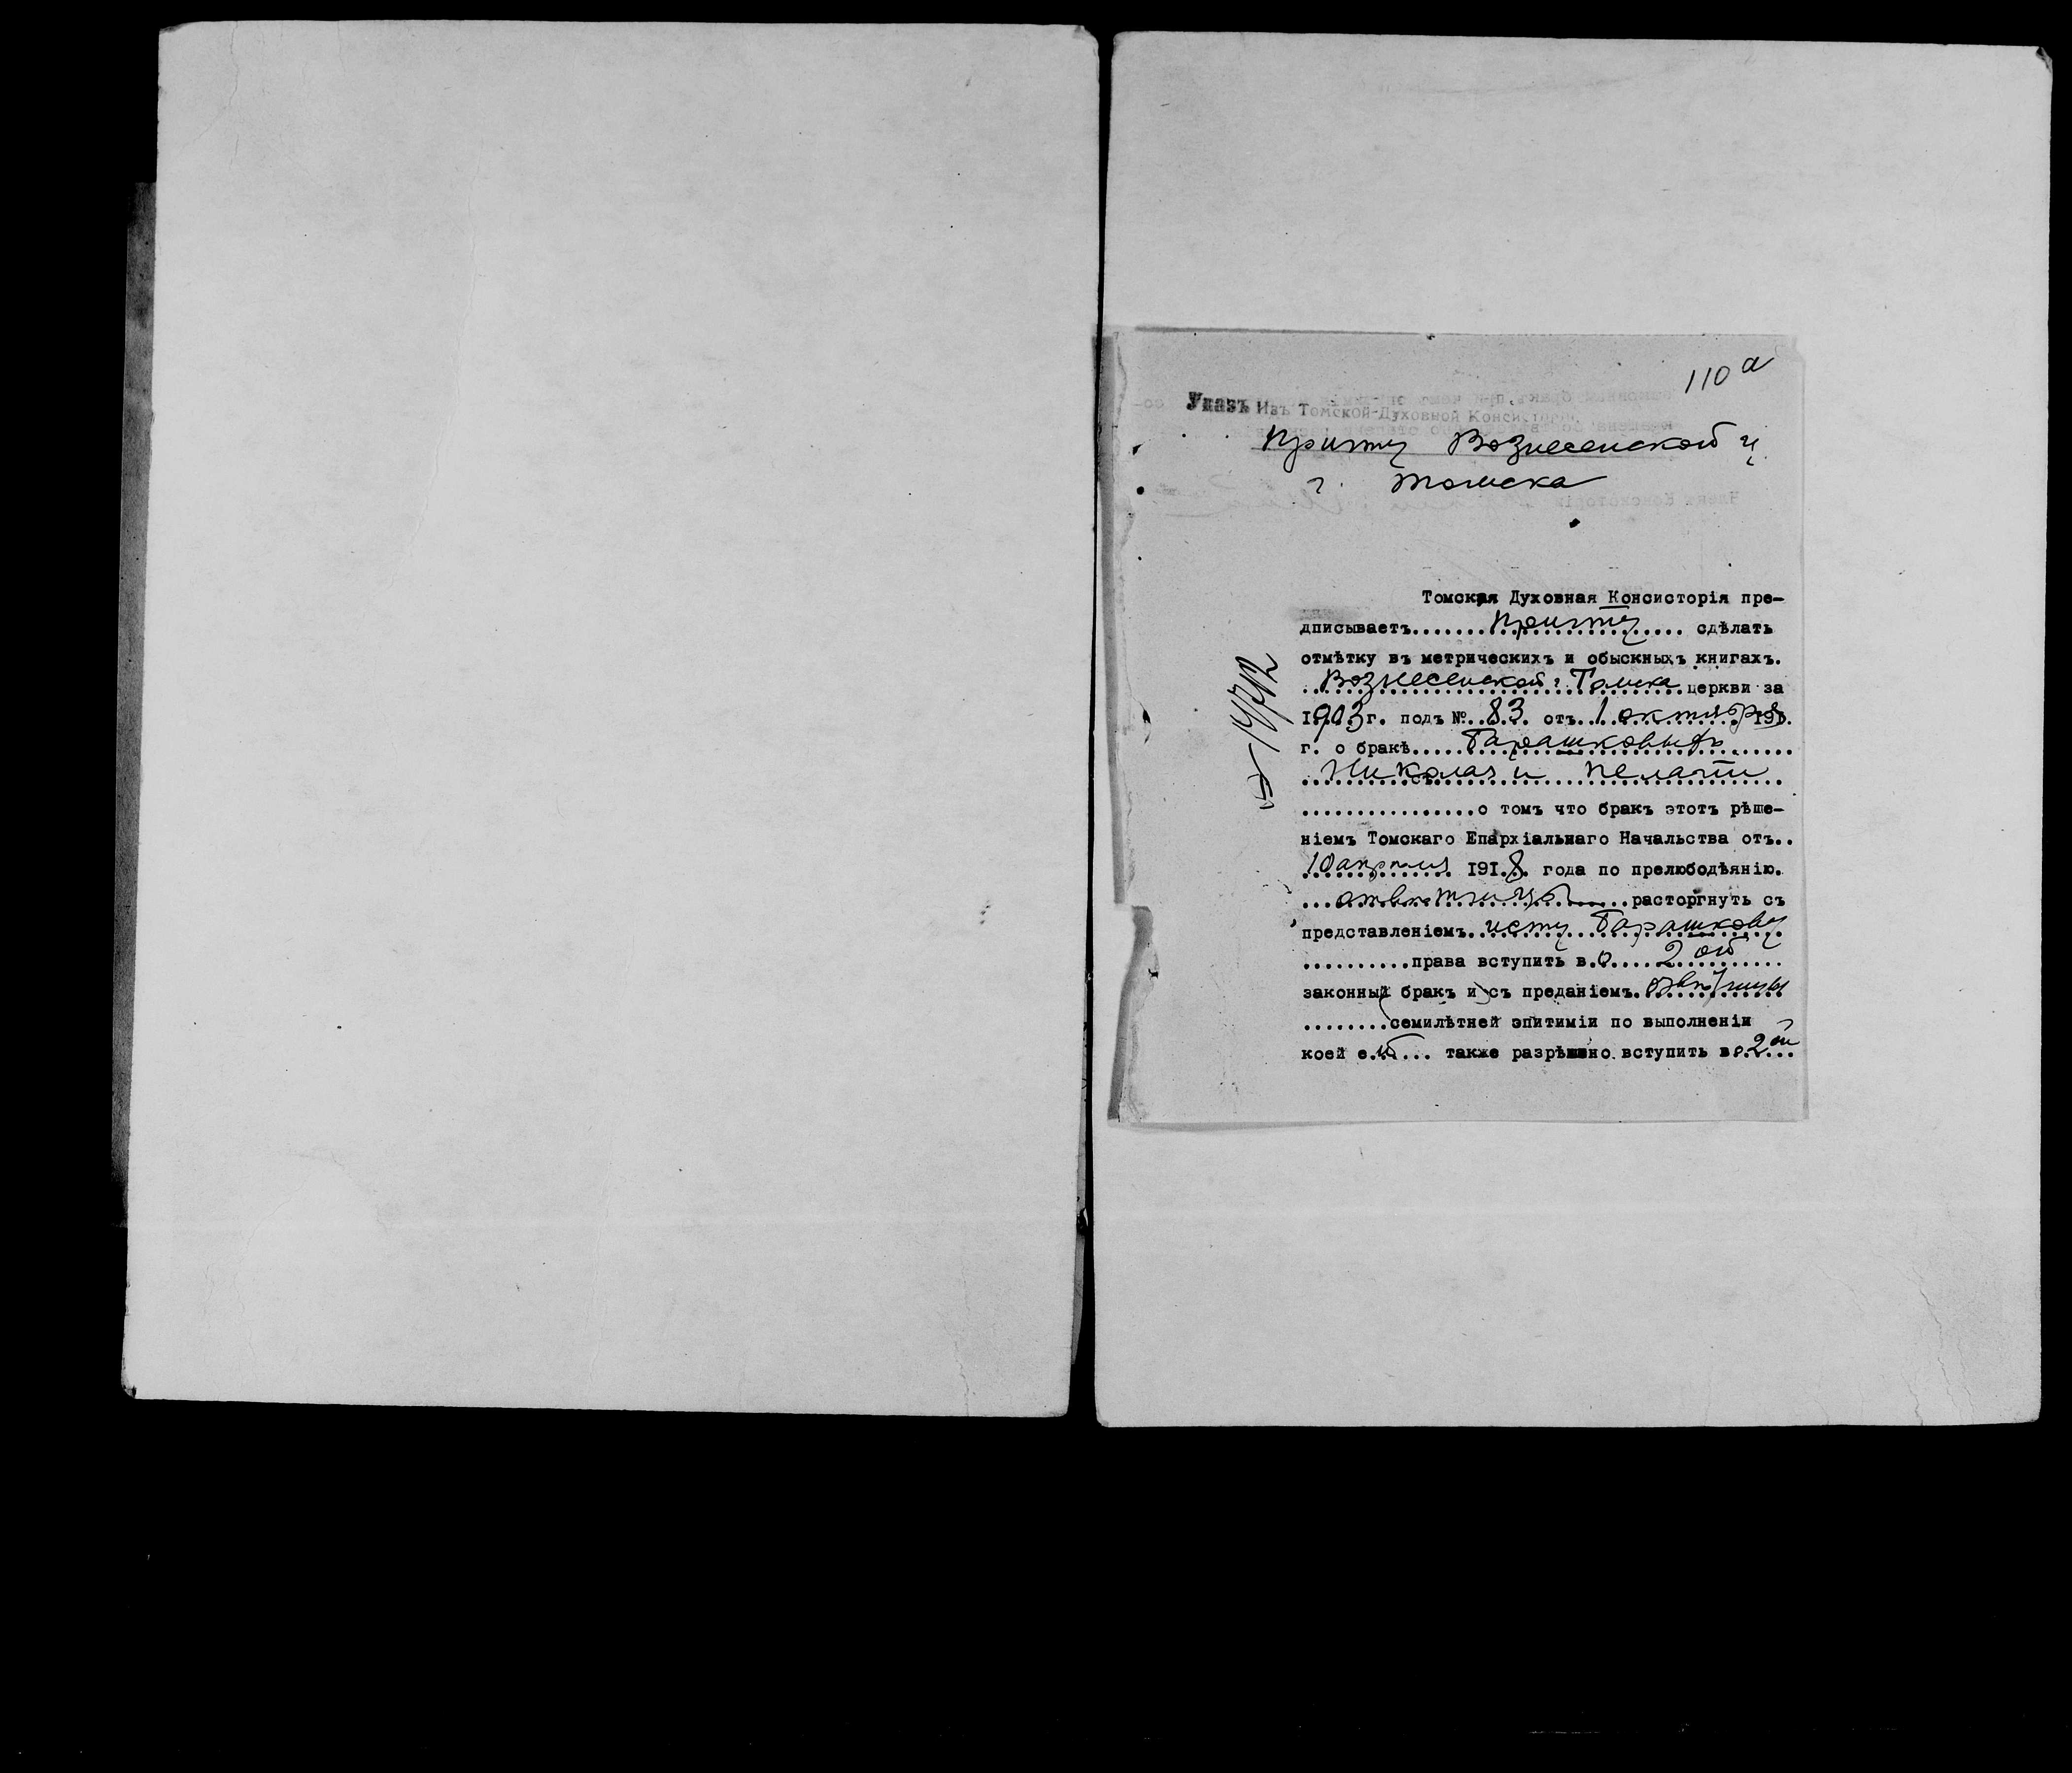 110 а
Указъ Изъ Томской Духовной Консисторіи
Причту Вознесенской ц.
г. Томска
Томская Духовная Консисторія пре-
дписываетъ.......Причту.......... сдѣлать
отмѣтку въ метрическихъ и обыскныхъ книгахъ.
..Вознесенской г. Томска..церкви за
1903 г. подъ №..83. отъ..1 октября 190.
г. о бракѣ.....Барашковыхъ.....
..Николая и Пелагіи..
................о томъ что бракъ этотъ рѣше-
ніемъ Томскаго Епархіальнаго Начальства отъ..
10 апрѣля 1918. года по прелюбодѣянію.
...отвѣтчицы.....расторгнуть съ
представленіемъ..истцу Барашкову
..........права вступить в.о....2 ой.........
законный бракъ и съ преданіемъ.отвѣтчицы
........семилѣтней эпитиміи по выполненіи
коей е.й... также разрѣшено вступить во.2 ой...
№ 14712